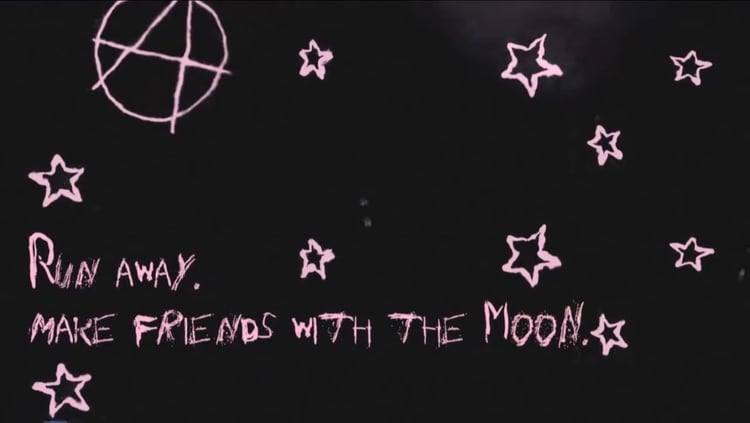 RUN AWAY.
MAKE FRIENDS WITH THE MOON.